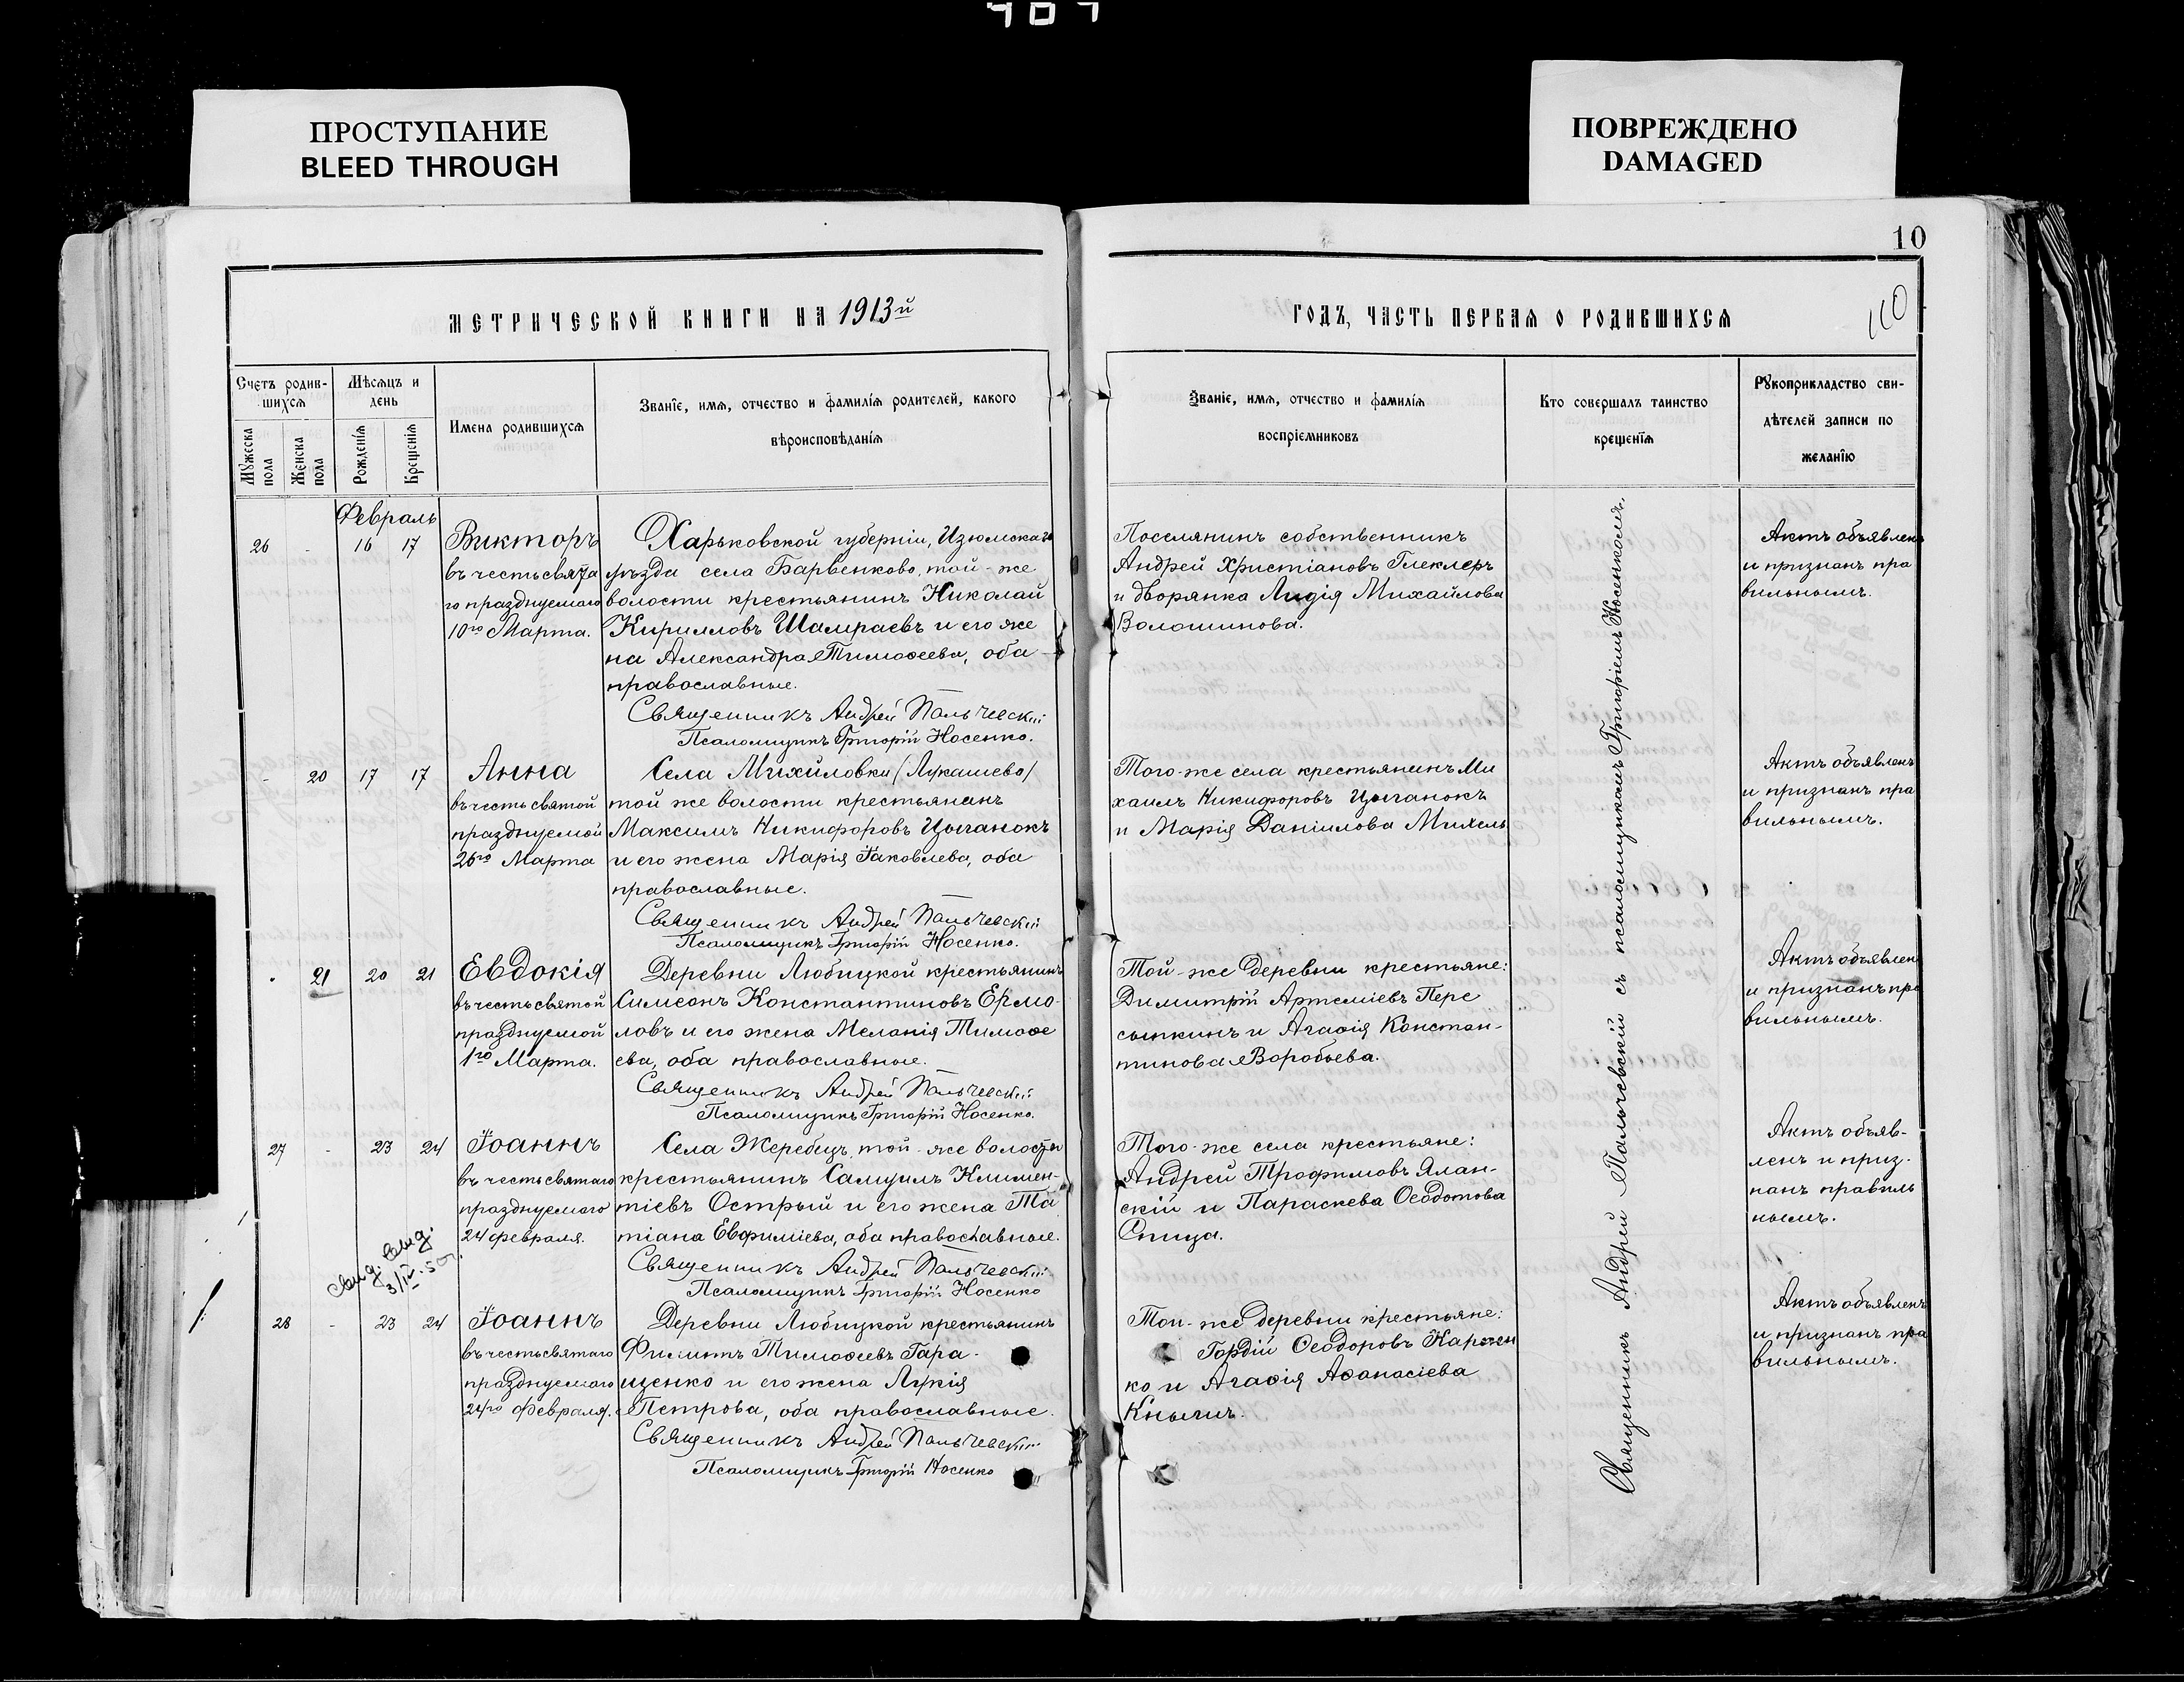 ПРОСТУПАНИЕ
BLEED THROUGH
ПОВРЕЖДЕНО
DAMAGED
10
110
МЕТРИЧЕСКОЙ КНИГИ НА 1913й
ГОДЪ, ЧАСТЬ ПЕРВАЯ О РОДИВШИХСЯ
Счетъ родив-
шихся
Мужеска пола
Женска пола
Мѣсяцъ и
день
Рожденія
Крещенія
Имена родившихся
Званіе, имя, отчество и фамилія родителей, какого
вѣроисповѣданія
Званіе, имя, отчество и фамилія
воспріемниковъ
Кто совершалъ таинство
крещенія
Рукоприкладство сви-
дѣтелей записи по
желанію
Февраль
26 - 16 17
Викторъ
въ честь свята
го празднуемаго
10го Марта.
Харьковской губерніи, Изюмскаго
уѣзда села Барвенково, той-же
волости крестьянинъ Николай
Кирилловъ Шамраевъ и его же
на Александра Тимоѳеева, оба
православные.
Священникъ Андрей Пальчевскій
Псаломщикъ Григорій Носенко.
Поселянинъ собственникъ
Андрей Христіановъ Геклеръ
и дворянка Лидія Михайлова
Волошинова.
Актъ объявленъ
и признанъ пра
вильнымъ.
- 20 17 17
Анна
въ честь святой
празднуемой
26го Марта
Села Михайловки (Лукашево)
той же волости крестьянинъ
Максимъ Никифоровъ Цыганокъ
и его жена Марія Іаковлева, оба
православные.
Священникъ Андрей Пальчевскій
Псаломщикъ Григорій Носенко.
Того-же села крестьянинъ Ми
хаилъ Никифоровъ Цыганокъ
и Марія Даніилова
Актъ объявленъ
и признанъ пра
вильнымъ.
- 21 20 21
Евдокія
въ честь святой
празднуемой
1го Марта.
Деревни Любицкой крестьянинъ
Симеонъ Константиновъ Ермо-
ловъ и его жена Меланія Тимоѳе
ева, оба православные.
Священникъ Андрей Пальчевскій
Псаломщикъ Григорій Носенко.
Той-же деревни крестьяне:
Димитрій Артеміевъ Пере
сыпкинъ и Агаѳія Констан-
тинова Воробьева.
Актъ объявленъ
и признанъ пра
вильнымъ.
27 - 23 24
Іоаннъ
въ честь святаго
празднуемаго
24 февраля.
Села Жеребецъ, той-же волости
крестьянинъ Самуилъ Климен-
тіевъ Острый и его жена Та
тіана Евфиміева, оба православные.
Священникъ Андрей Пальчевскій
Псаломщикъ Григорій Носенко
Того-же села крестьяне:
Андрей Трофимовъ Ялан-
скій и Параскева Ѳеодотова
Спица.
Актъ объяв-
ленъ и приз-
нанъ правиль
нымъ.
28 - 23 24
Іоаннъ
въ честь святаго
празднуемаго
24го Февраля.
Деревни Любицкой крестьянинъ
Филиппъ Тимоѳеевъ Гара-
щенко и его жена Лукія
Петрова, оба православные.
Священникъ Андрей Пальчевскій
Псаломщикъ Григорій Носенко
Той-же деревни крестьяне:
Гордій Ѳеодоровъ Карпен
ко и Агаѳія Аѳанасіева
Актъ объявленъ
и признанъ пра
вильнымъ.
Священникъ Андрей Пальчевскій съ псаломщикомъ Григоріемъ Носенкомъ.